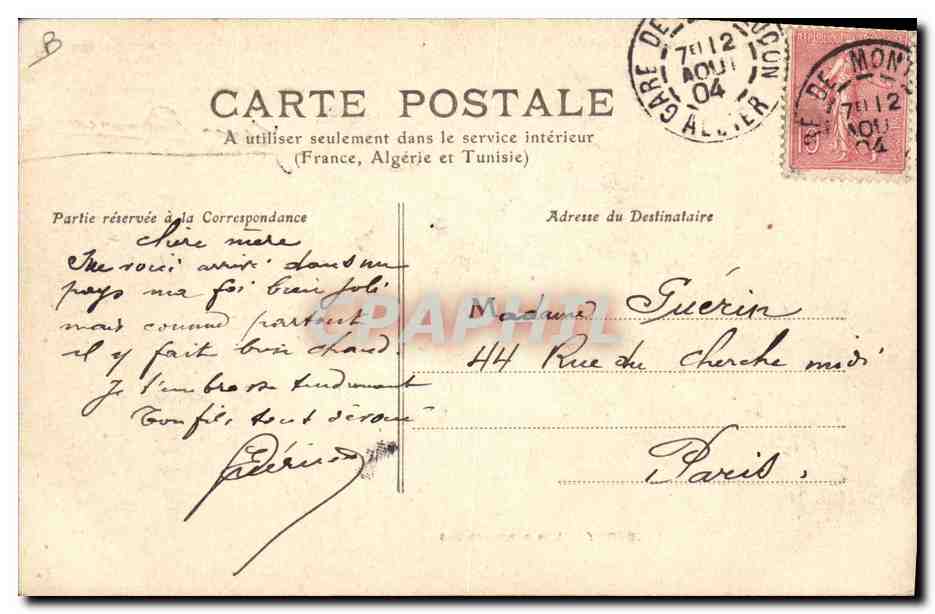 B
GARE DE MONTLUCON
7E 12
AOUT
04
ALLIER
REPUBLIQUE FRANCAISE
GARE DE MONT
7E 12
AOU
04
10
CARTE POSTALE
A utiliser seulement dans le service intérieur
(France, Algérie et Tunisie)
Partie réservée à la Correspondance
Adresse du Destinataire
chère mère
Me voici arrivé dans un
pays ma foi bien joli
mais comme partout
il y fait bien chaud.
Je t'embrasse tendrement
Ton fils tout dévoué
Guérin
Madame Guérin
44 Rue du Cherche midi
Paris.
CPAPHIL